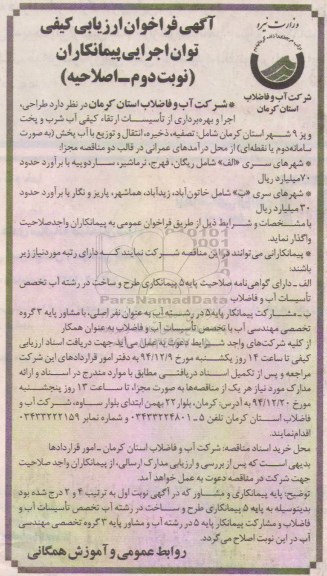 وزارت نیرو
شرکت آب و فاضلاب
استان کرمان
آگهی فراخوان ارزیابی کیفی
توان اجرایی پیمانکاران
(نوبت دوم ـ اصلاحیه)
* شرکت آب و فاضلاب استان کرمان در نظر دارد طراحی،
اجرا و بهره‌برداری از تأسیسات ارتقاء کیفی آب شرب و پخت
و پز ۹ شهر استان کرمان شامل: تصفیه، ذخیره، انتقال و توزیع با آب پخش (به صورت
سامانه‌دوم یا نقطه‌ای) از محل درآمدهای عمرانی در قالب دو مناقصه مجزا:
شهرهای سری «الف» شامل ریگان، فهرج، نرماشیر، ساردوییه با برآورد حدود
۷۰ میلیارد ریال
* شهرهای سری «ب» شامل خاتون‌آباد، زیدآباد، هماشهر، پاریز و نگار با برآورد حدود
۳۰ میلیارد ریال
با مشخصات و شرایط ذیل از طریق فراخوان عمومی به پیمانکاران واجد صلاحیت
واگذار نماید.
* پیمانکارانی می‌توانند در این مناقصه شرکت نمایند که دارای رتبه مورد نیاز زیر
باشند:
الف ـ دارای گواهی‌نامه صلاحیت پایه ۵ پیمانکاری طرح و ساخت در رشته آب تخصص
تأسیسات آب و فاضلاب
ب ـ مشارکت پیمانکار پایه ۵ در رشته آب به عنوان نفر اصلی، با مشاور پایه ۳ گروه
تخصصی مهندسی آب با تخصص تأسیسات آب و فاضلاب به عنوان همکار
از کلیه شرکت‌های واجد شرایط دعوت به عمل می‌آید جهت دریافت اسناد ارزیابی
کیفی تا ساعت ۱۴ روز یکشنبه مورخ ۹۴/۱۲/۹ به دفتر امور قراردادهای این شرکت
مراجعه و پس از تکمیل اسناد دریافتی مطابق با موارد مندرج در اسناد و ارائه
مدارک مورد نیاز هر یک از مناقصه‌ها به صورت مجزا، تا ساعت ۱۳ روز پنجشنبه
مورخ ۹۴/۱۲/۲۰ به آدرس: کرمان، بلوار ۲۲ بهمن ابتدای بلوار ساوه، شرکت آب و
فاضلاب استان کرمان تلفن ۵ ـ ۰۳۴۳۳۲۲۴۸۰۱ و شماره نمابر ۰۳۴۳۳۲۲۲۱۵۹
اقدام نمایند.
محل خرید اسناد مناقصه: شرکت آب و فاضلاب استان کرمان ـ امور قراردادها
بدیهی است که پس از بررسی و ارزیابی مدارک ارسالی، از پیمانکاران واجد صلاحیت
جهت شرکت در مناقصه دعوت به عمل خواهد آمد.
توضیح: پایه پیمانکاری و مشاور که در آگهی نوبت اول به ترتیب ۴ و ۲ درج شده بود
بدینوسیله به پایه ۵ پیمانکاری طرح و ساخت در رشته آب تخصص تأسیسات آب و
فاضلاب و مشارکت پیمانکار پایه ۵ در رشته آب و مشاور پایه ۳ گروه تخصصی مهندسی
آب در این نوبت اصلاح می‌گردد.
روابط عمومی و آموزش همگانی
ParsNamadData